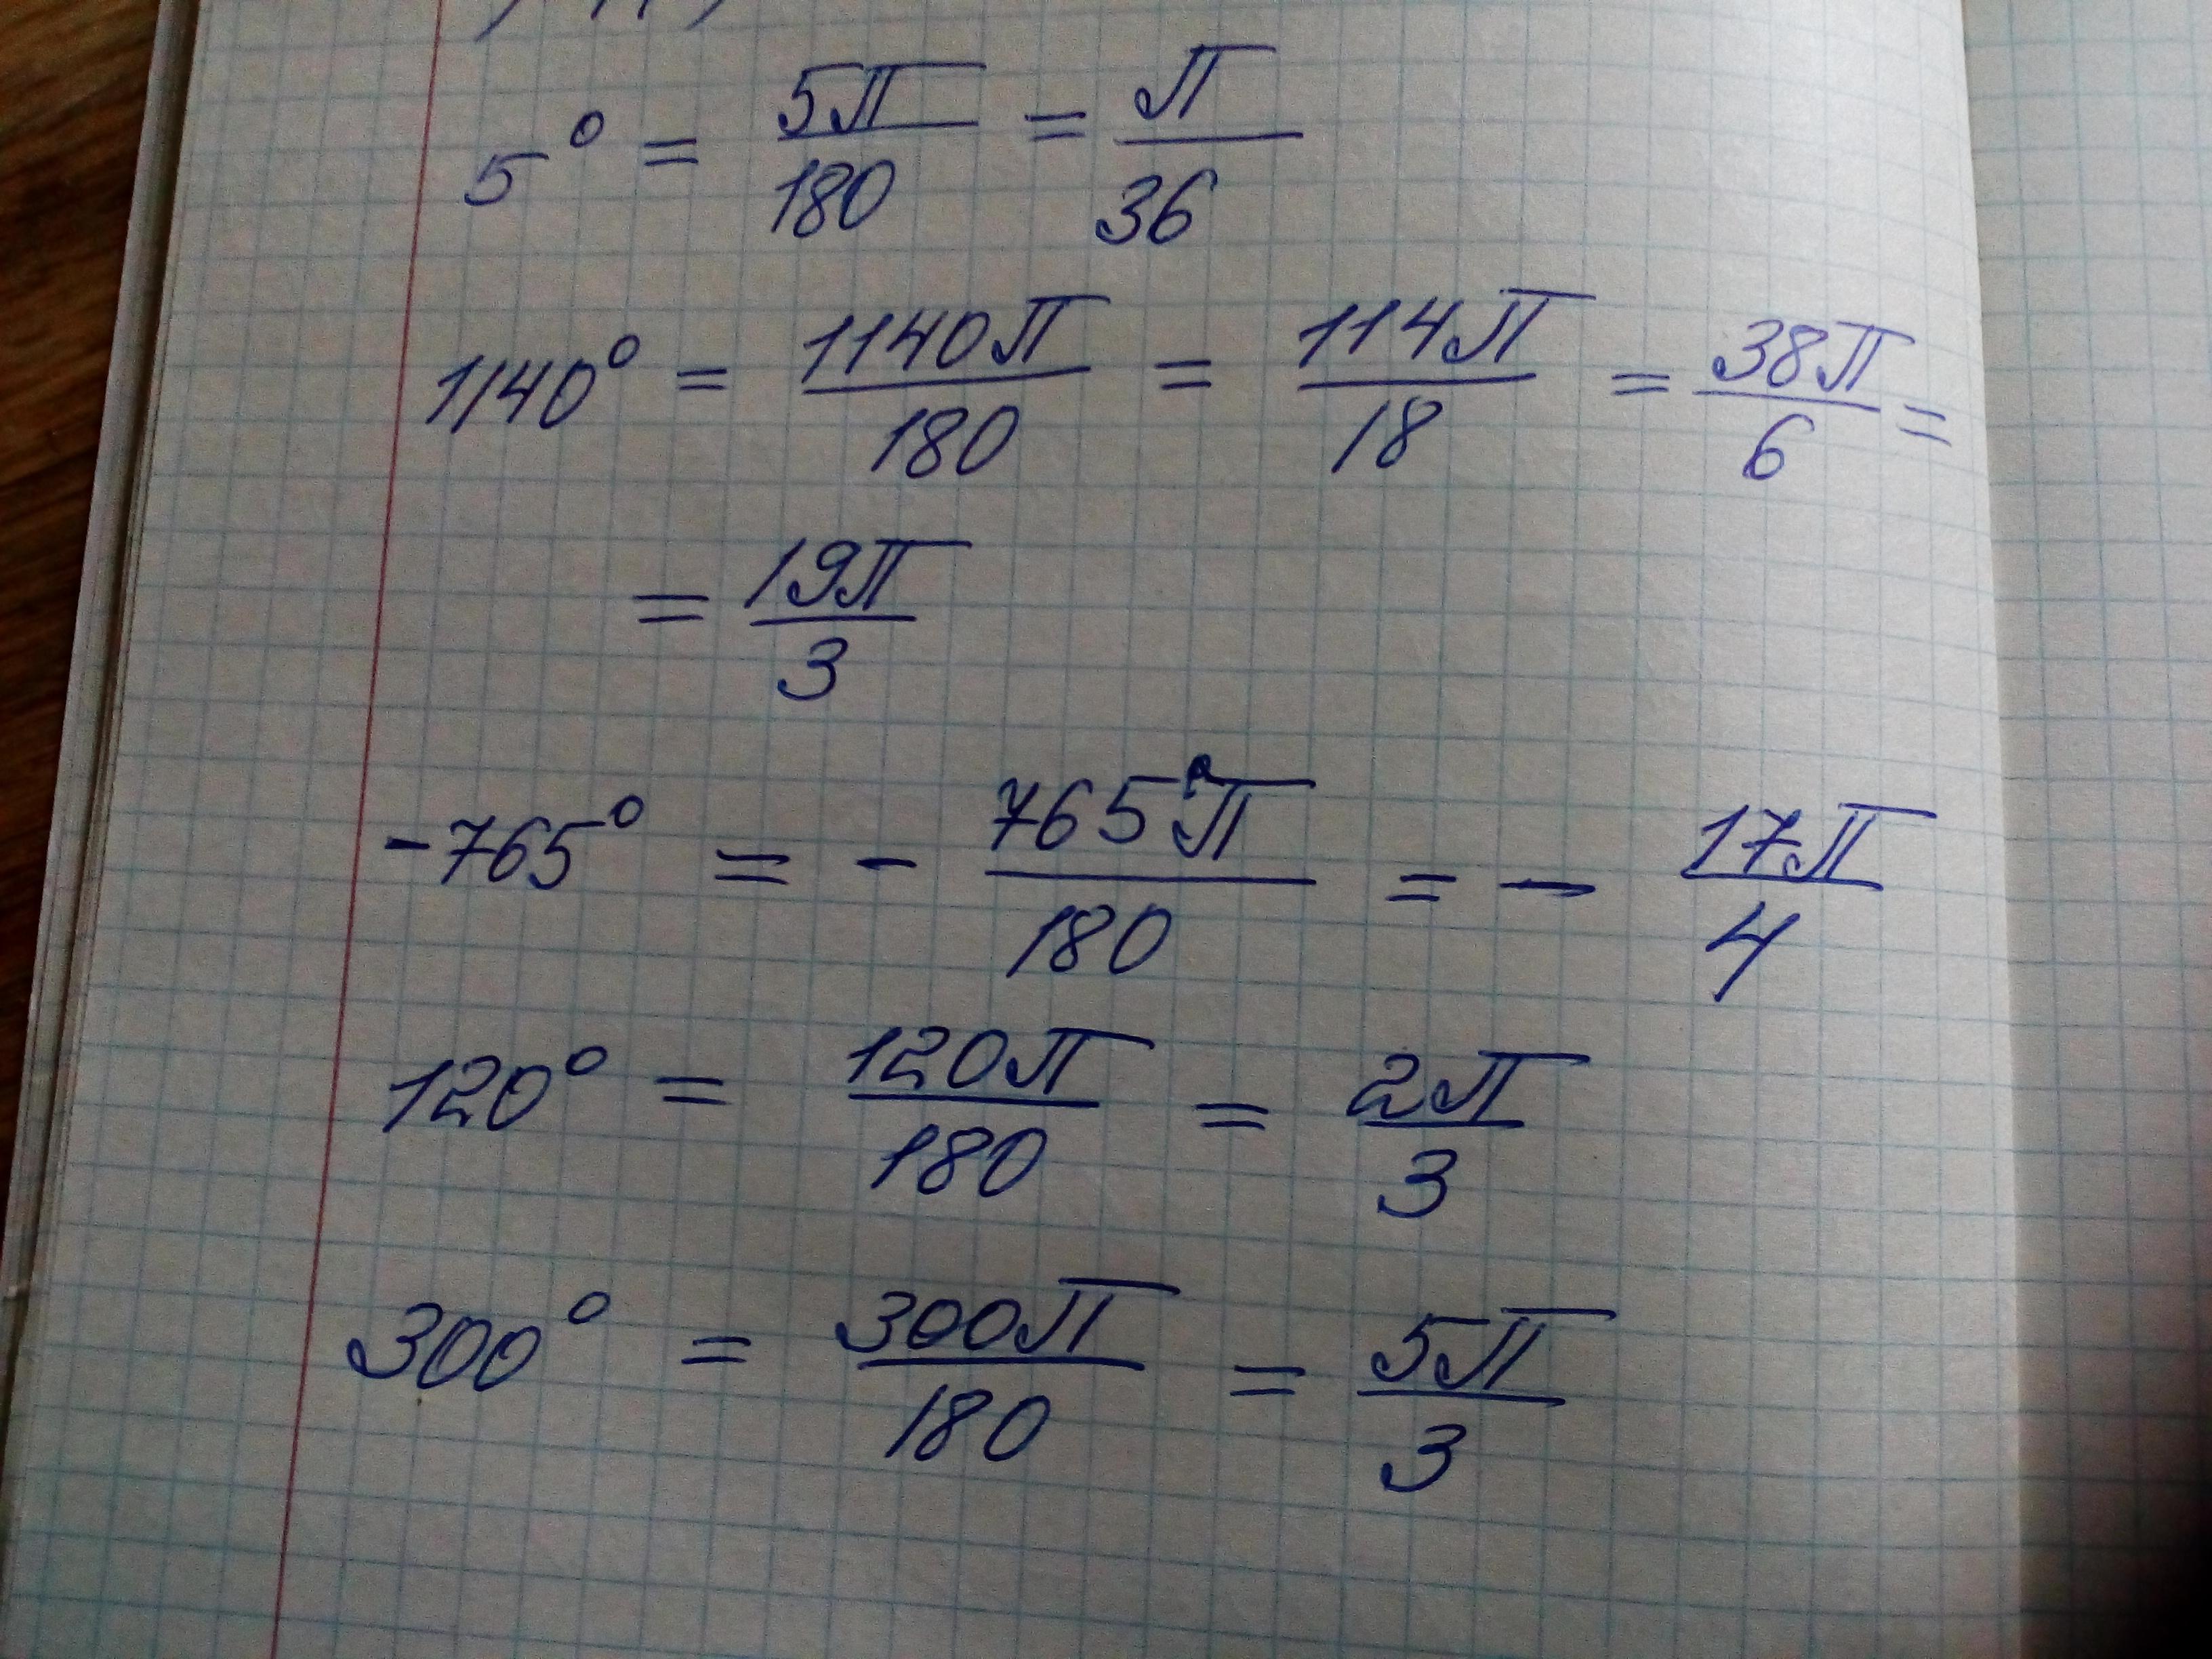 5° = 5π/180 = π/36
1140° = 1140π/180 = 114π/18 = 38π/6 =
= 19π/3
-765° = - 765π/180 = - 17π/4
120° = 120π/180 = 2π/3
300° = 300π/180 = 5π/3